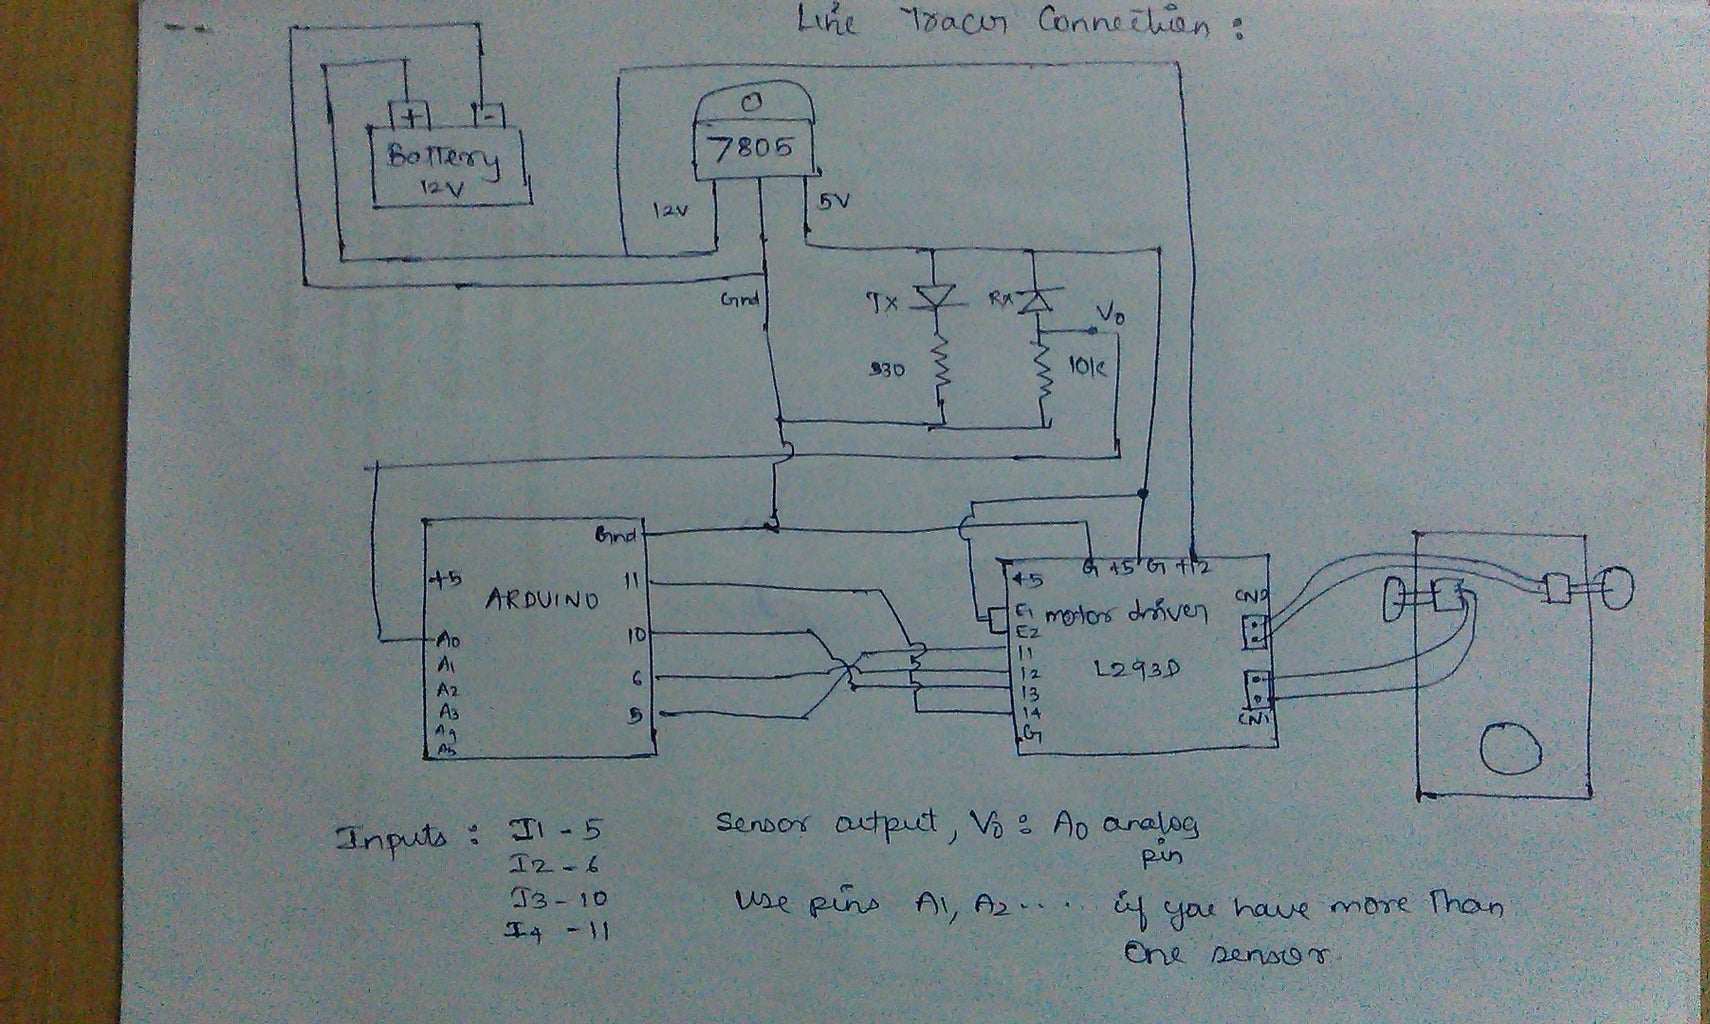 Line Tracer Connection :
+ -
Battery
12V
7805
12V
5V
Gnd
TX
RX
Vo
330
10k
Gnd
+5
11
ARDUINO
10
A0
A1
6
A2
A3
5
A4
A5
G +5 G +12
+5
CN2
E1 motor driver
E2
I1
I2 L293D
I3
I4
CN1
G
Inputs : I1 - 5
I2 - 6
I3 - 10
I4 - 11
Sensor output, Vo : A0 analog
pin
Use pins A1, A2 .... if you have more than
one sensor.